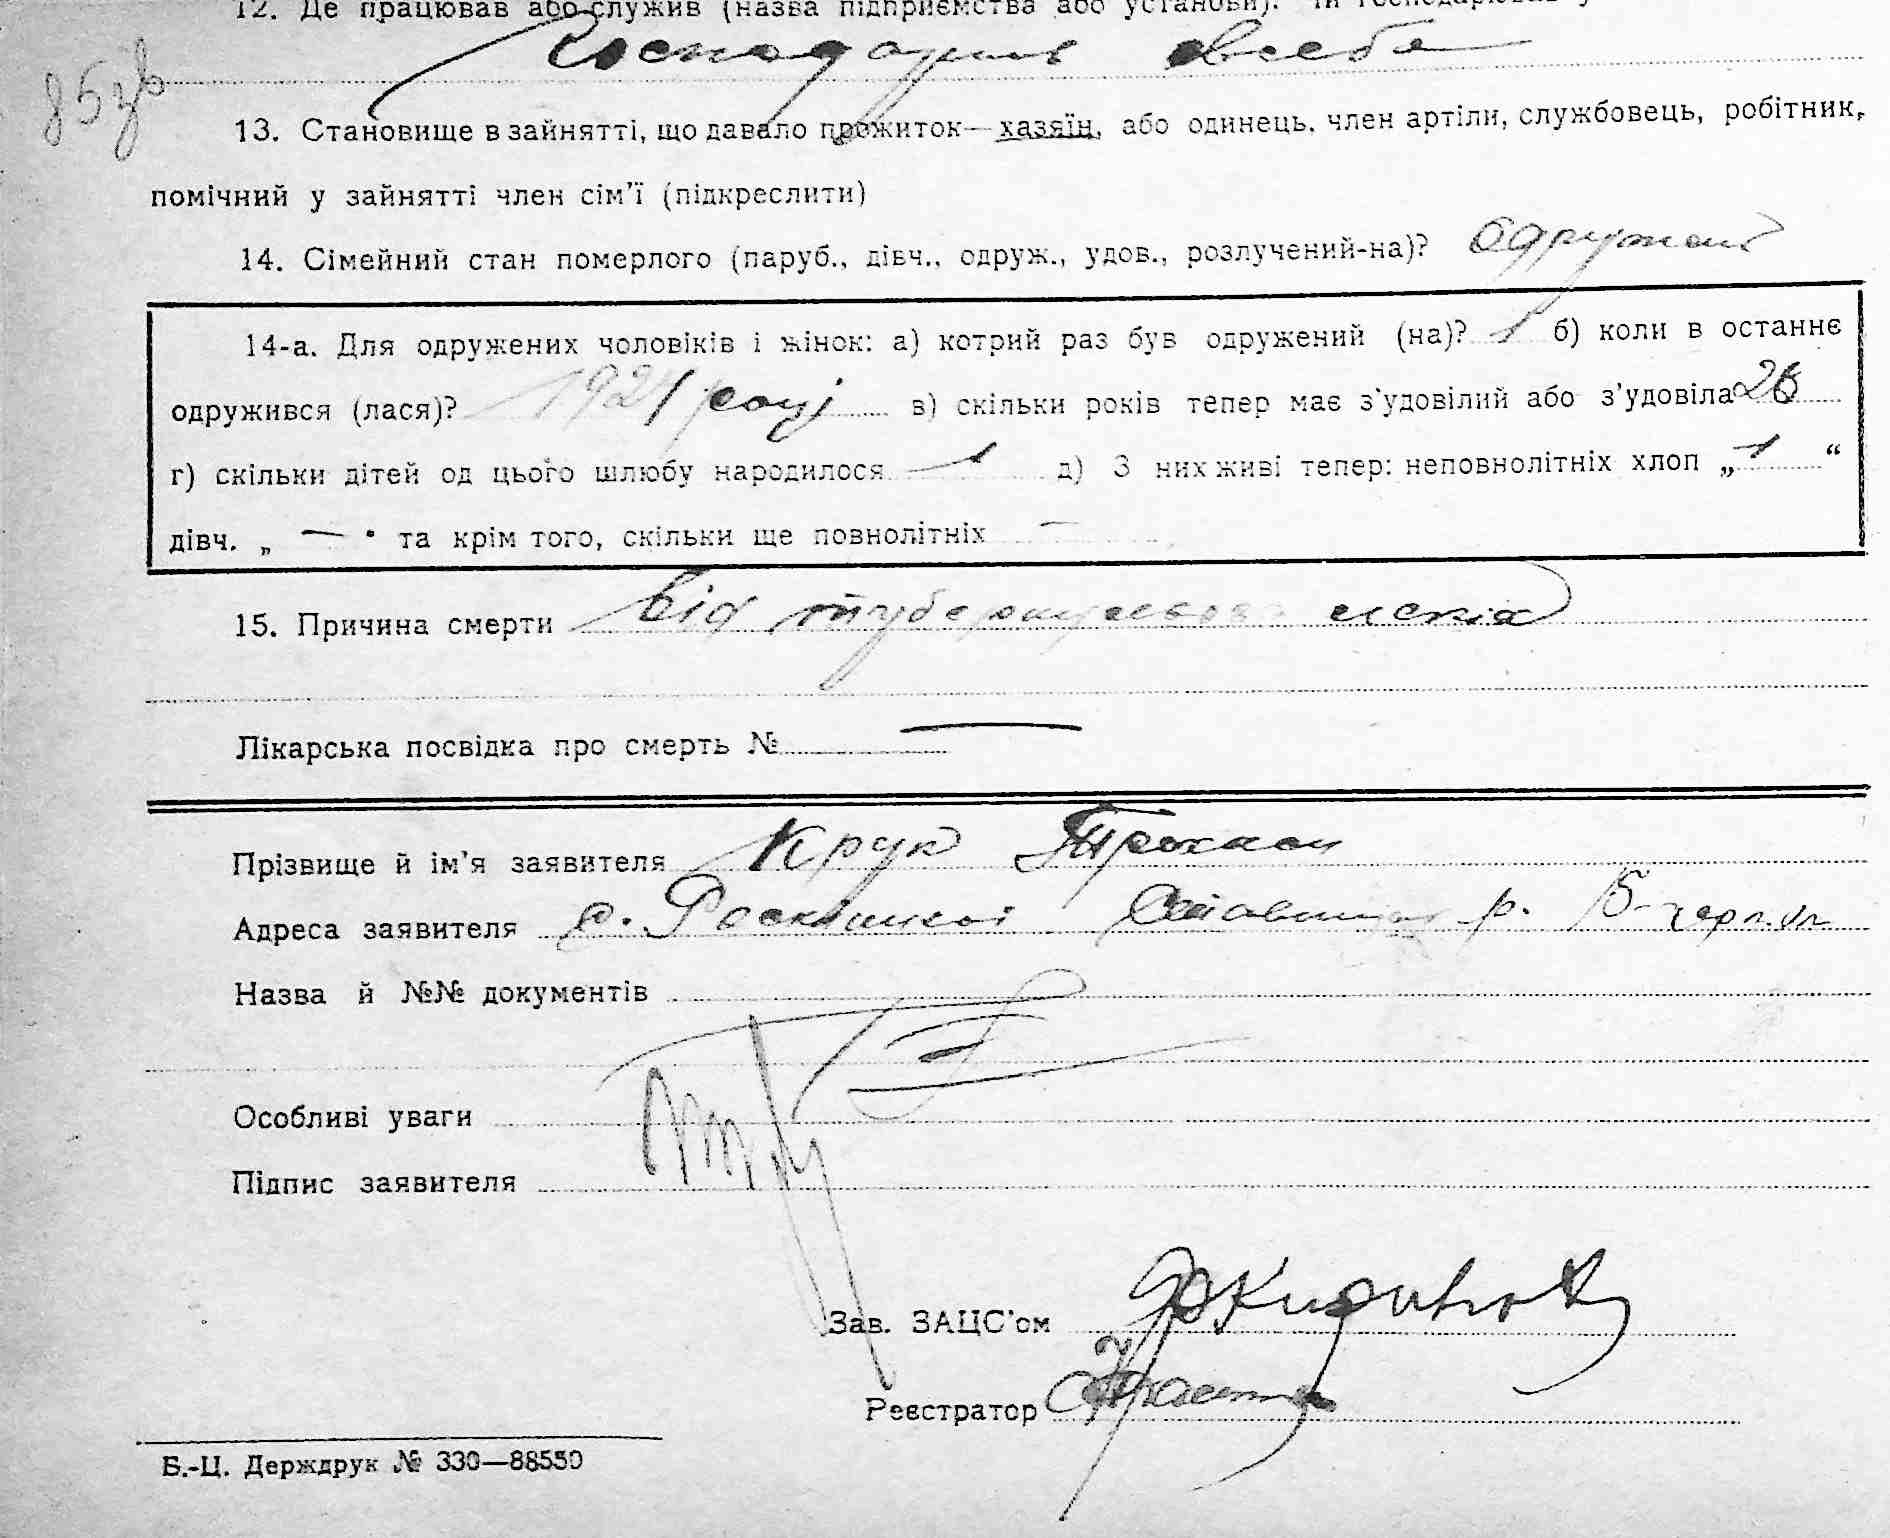 12. Де працював або служив (назва підприємства або установи).
Господарив в себе
85зв
13. Становище в зайнятті, що давало прожиток—хазяїн, або одинець, член артіли, службовець, робітник,
помічний у зайнятті член сім’ї (підкреслити)
14. Сімейний стан померлого (паруб., дівч., одруж., удов., розлучений-на)? одружений
14-а. Для одружених чоловіків і жінок: а) котрий раз був одружений (на)? 1 б) коли в останнє
одружився (лася)? 1921 році в) скільки років тепер має з’удовілий або з’удовіла
г) скільки дітей од цього шлюбу народилося 1 д) З них живі тепер: неповнолітніх хлоп „ 1 “
дівч. „ — " та крім того, скільки ще повнолітніх —
15. Причина смерти від туберкульоза легкіх
Лікарська посвідка про смерть № —
Прізвище й ім’я заявителя Крук
Адреса заявителя с. р. Б-
Назва й №№ документів
Особливі уваги
Підпис заявителя
Зав. ЗАЦС’ом
Реєстратор
Б.-Ц. Держдрук № 330—88550